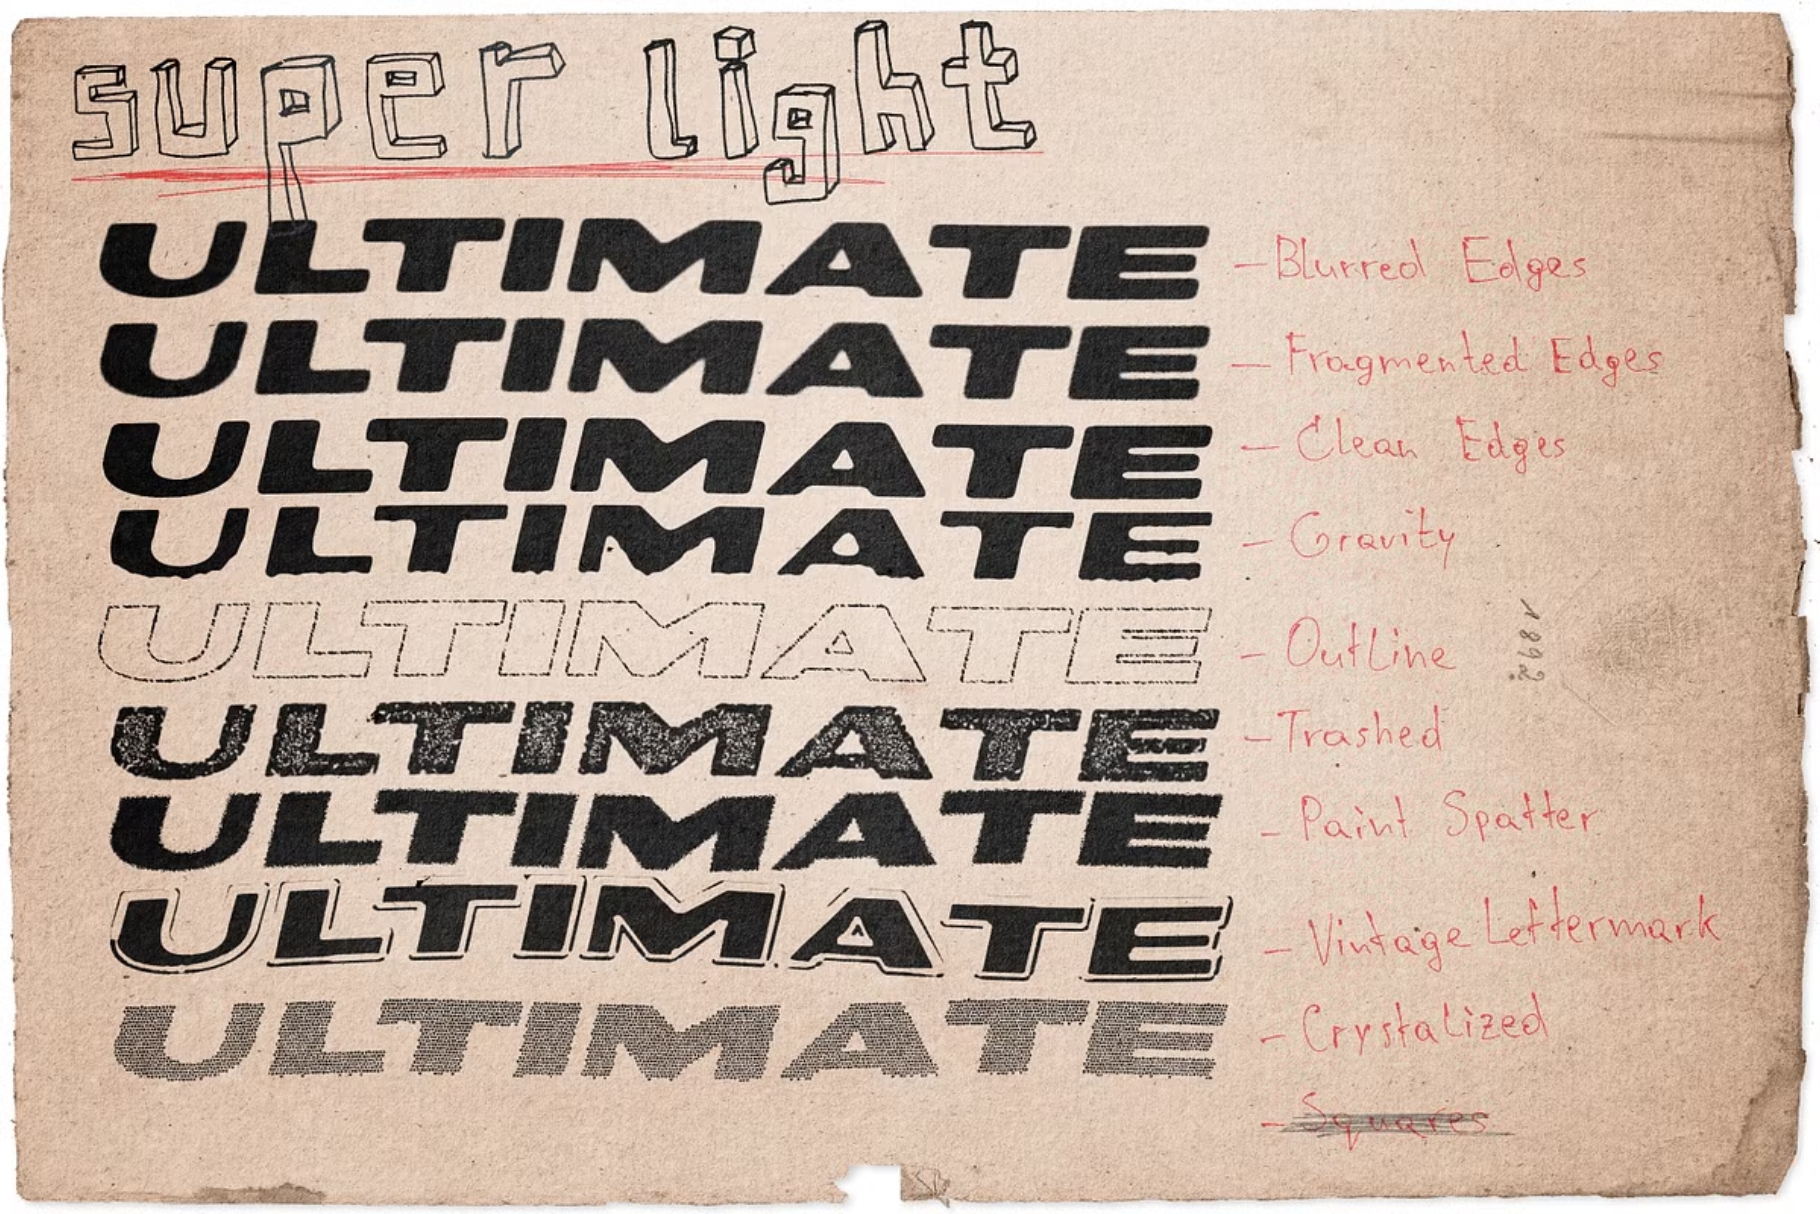 super light
ULTIMATE – Blurred Edges
ULTIMATE – Fragmented Edges
ULTIMATE – Clean Edges
ULTIMATE – Gravity
ULTIMATE – OutLine
1892
ULTIMATE – Trashed
ULTIMATE – Paint Spatter
ULTIMATE – Vintage Lettermark
ULTIMATE – CrystaLized
– Squares